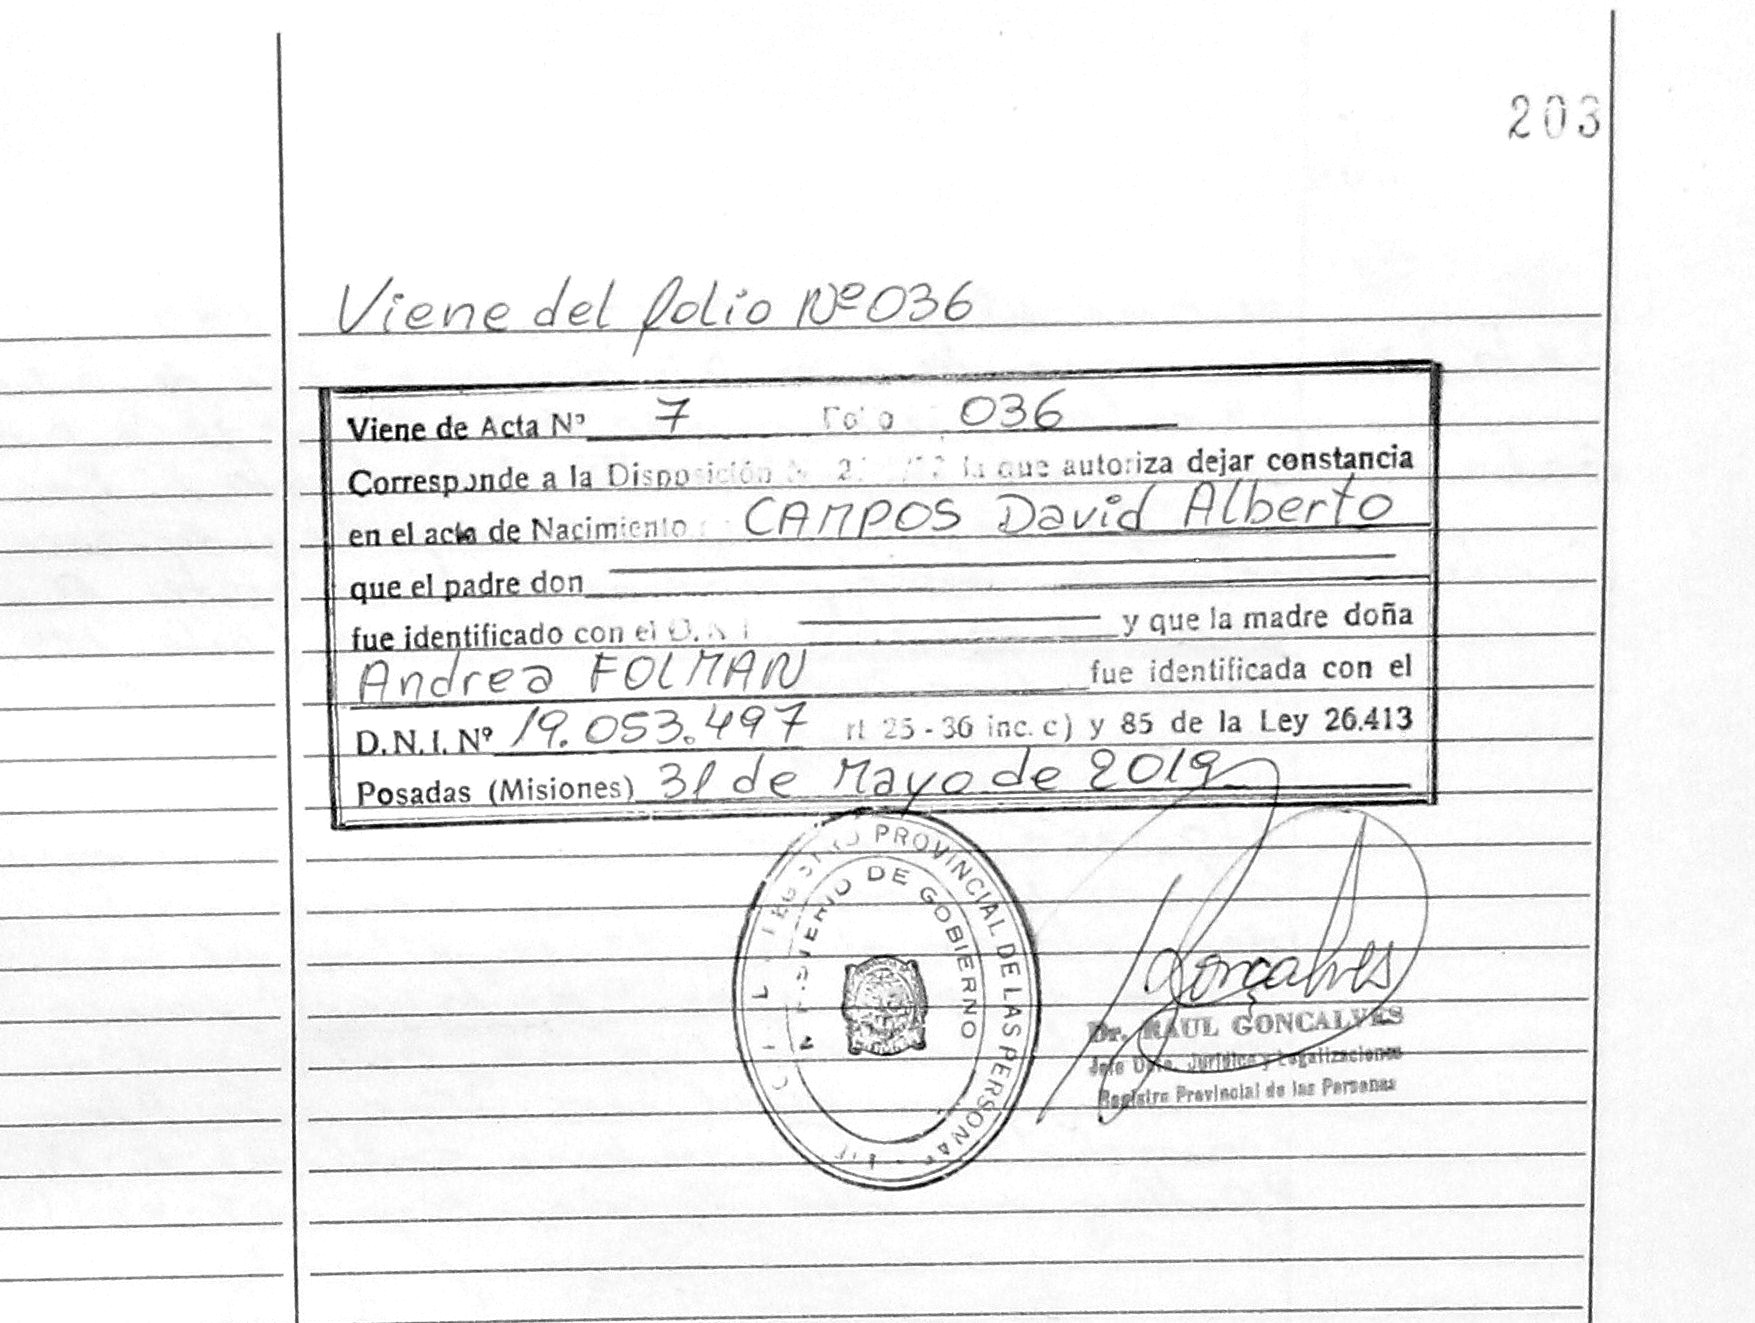 203
Viene del folio Nº 036
Viene de Acta Nº 7 Folio 036
Corresponde a la Disposición la que autoriza dejar constancia
en el acta de Nacimiento CAMPOS David Alberto
que el padre don
fue identificado con el D.N.I y que la madre doña
Andrea FOLMAN fue identificada con el
D.N.I. Nº 19.053.497 rt 25 - 36 inc. c) y 85 de la Ley 26.413
Posadas (Misiones) 31 de Mayo de 2019
PROVINCIAL DE LAS PERSONAS
DE GOBIERNO
Gonçalves
Dr. RAUL GONCALVES
Jefe Dpto. Jurídico y Legalizaciones
Registro Provincial de las Personas